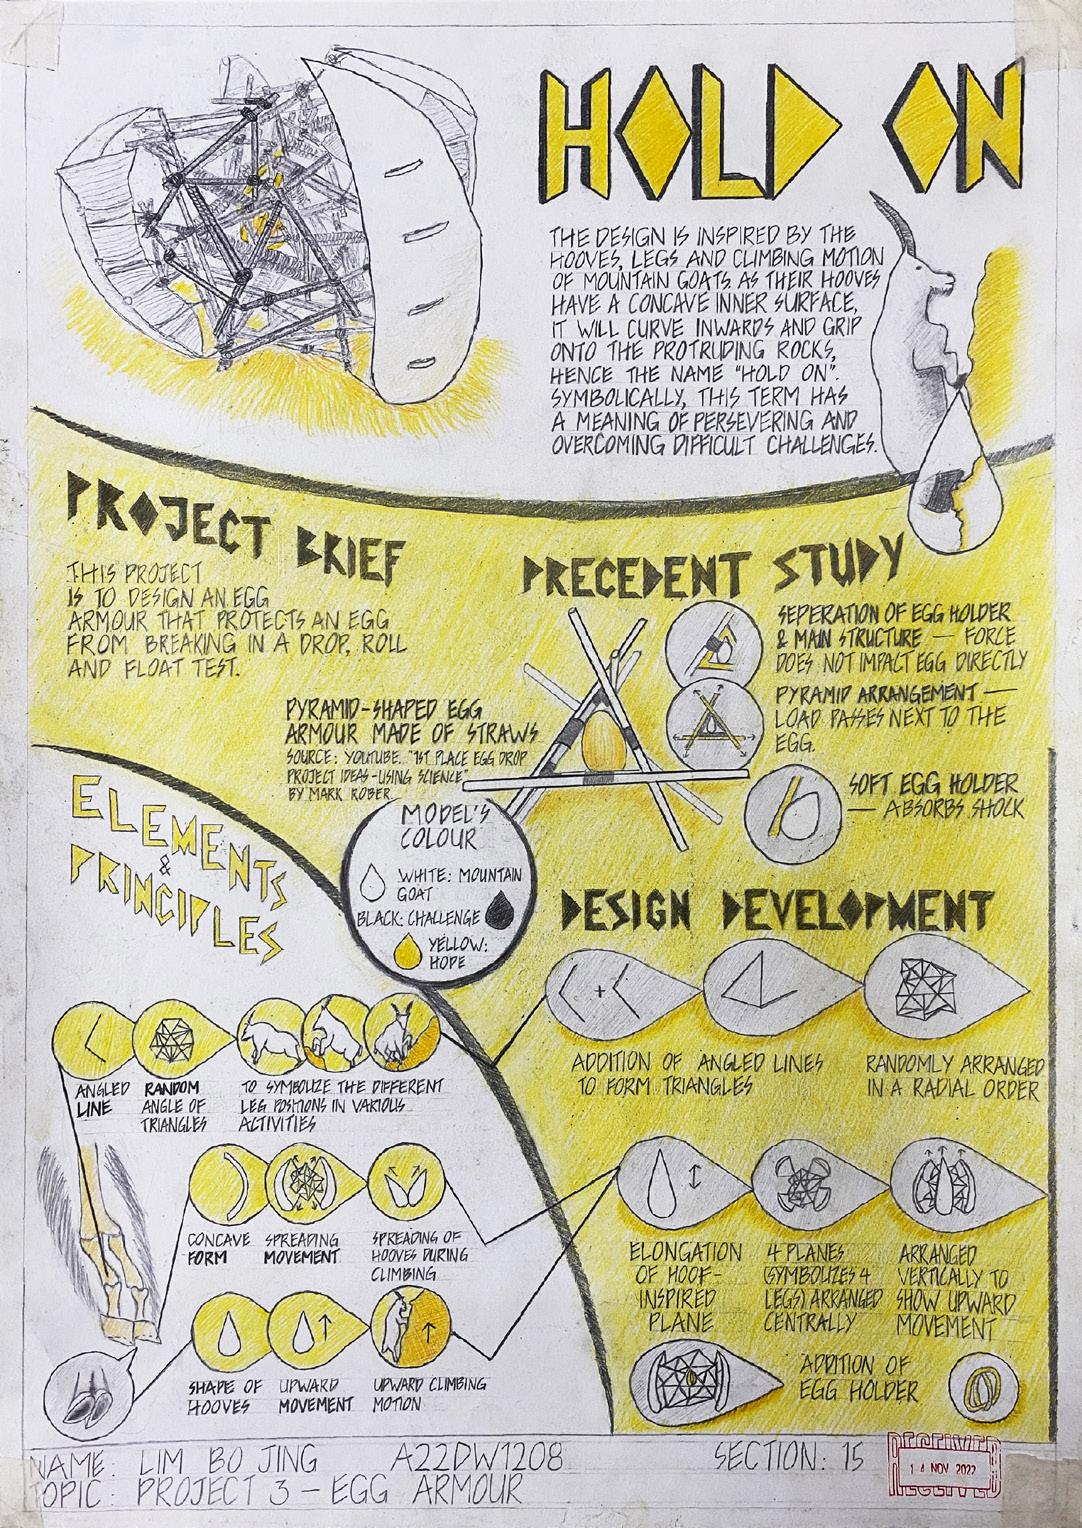 HOLD ON
THE DESIGN IS INSPIRED BY THE
HOOVES, LEGS AND CLIMBING MOTION
OF MOUNTAIN GOATS. AS THEIR HOOVES
HAVE A CONCAVE INNER SURFACE,
IT WILL CURVE INWARDS AND GRIP
ONTO THE PROTRUDING ROCKS,
HENCE THE NAME "HOLD ON".
SYMBOLICALLY, THIS TERM HAS
A MEANING OF PERSEVERING AND
OVERCOMING DIFFICULT CHALLENGES.
PROJECT BRIEF
THIS PROJECT
IS TO DESIGN AN EGG
ARMOUR THAT PROTECTS AN EGG
FROM BREAKING IN A DROP, ROLL
AND FLOAT TEST.
PRECEDENT STUDY
SEPERATION OF EGG HOLDER
& MAIN STRUCTURE — FORCE
DOES NOT IMPACT EGG DIRECTLY
PYRAMID ARRANGEMENT —
LOAD PASSES NEXT TO THE
EGG.
SOFT EGG HOLDER
— ABSORBS SHOCK
PYRAMID-SHAPED EGG
ARMOUR MADE OF STRAWS
SOURCE: YOUTUBE. "1ST PLACE EGG DROP
PROJECT IDEAS-USING SCIENCE"
BY MARK ROBER
MODEL'S
COLOUR
WHITE: MOUNTAIN
GOAT
BLACK: CHALLENGE
YELLOW:
HOPE
ELEMENTS
&
PRINCIPLES
ANGLED
LINE
RANDOM
ANGLE OF
TRIANGLES
TO SYMBOLIZE THE DIFFERENT
LEG POSITIONS IN VARIOUS
ACTIVITIES
CONCAVE
FORM
SPREADING
MOVEMENT
SPREADING OF
HOOVES DURING
CLIMBING
SHAPE OF
HOOVES
UPWARD
MOVEMENT
UPWARD CLIMBING
MOTION
DESIGN DEVELOPMENT
+
ADDITION OF ANGLED LINES
TO FORM TRIANGLES
RANDOMLY ARRANGED
IN A RADIAL ORDER
ELONGATION
OF HOOF-
INSPIRED
PLANE
4 PLANES
(SYMBOLIZES 4
LEGS) ARRANGED
CENTRALLY
ARRANGED
VERTICALLY TO
SHOW UPWARD
MOVEMENT
ADDITION OF
EGG HOLDER
NAME: LIM BO JING A22DW1208 SECTION: 15
TOPIC: PROJECT 3 - EGG ARMOUR
RECEIVED
14 NOV 2022
RECEIVED